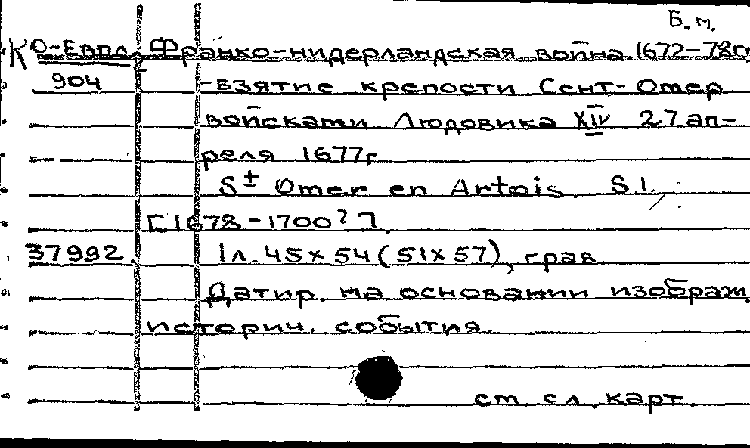 Б. м.
К О-Евпл. Франко-нидерландская война 1672-78гг
904 -взятие крепости Сент-Омер
войсками Людовика XIV 27 ап-
реля 1677г
St Omer en Artois S.l.
[1678-1700?].
37992. 1л. 45х54 (51х57), грав
Датир. на основании изображ.
историч. события.
см. сл. карт.